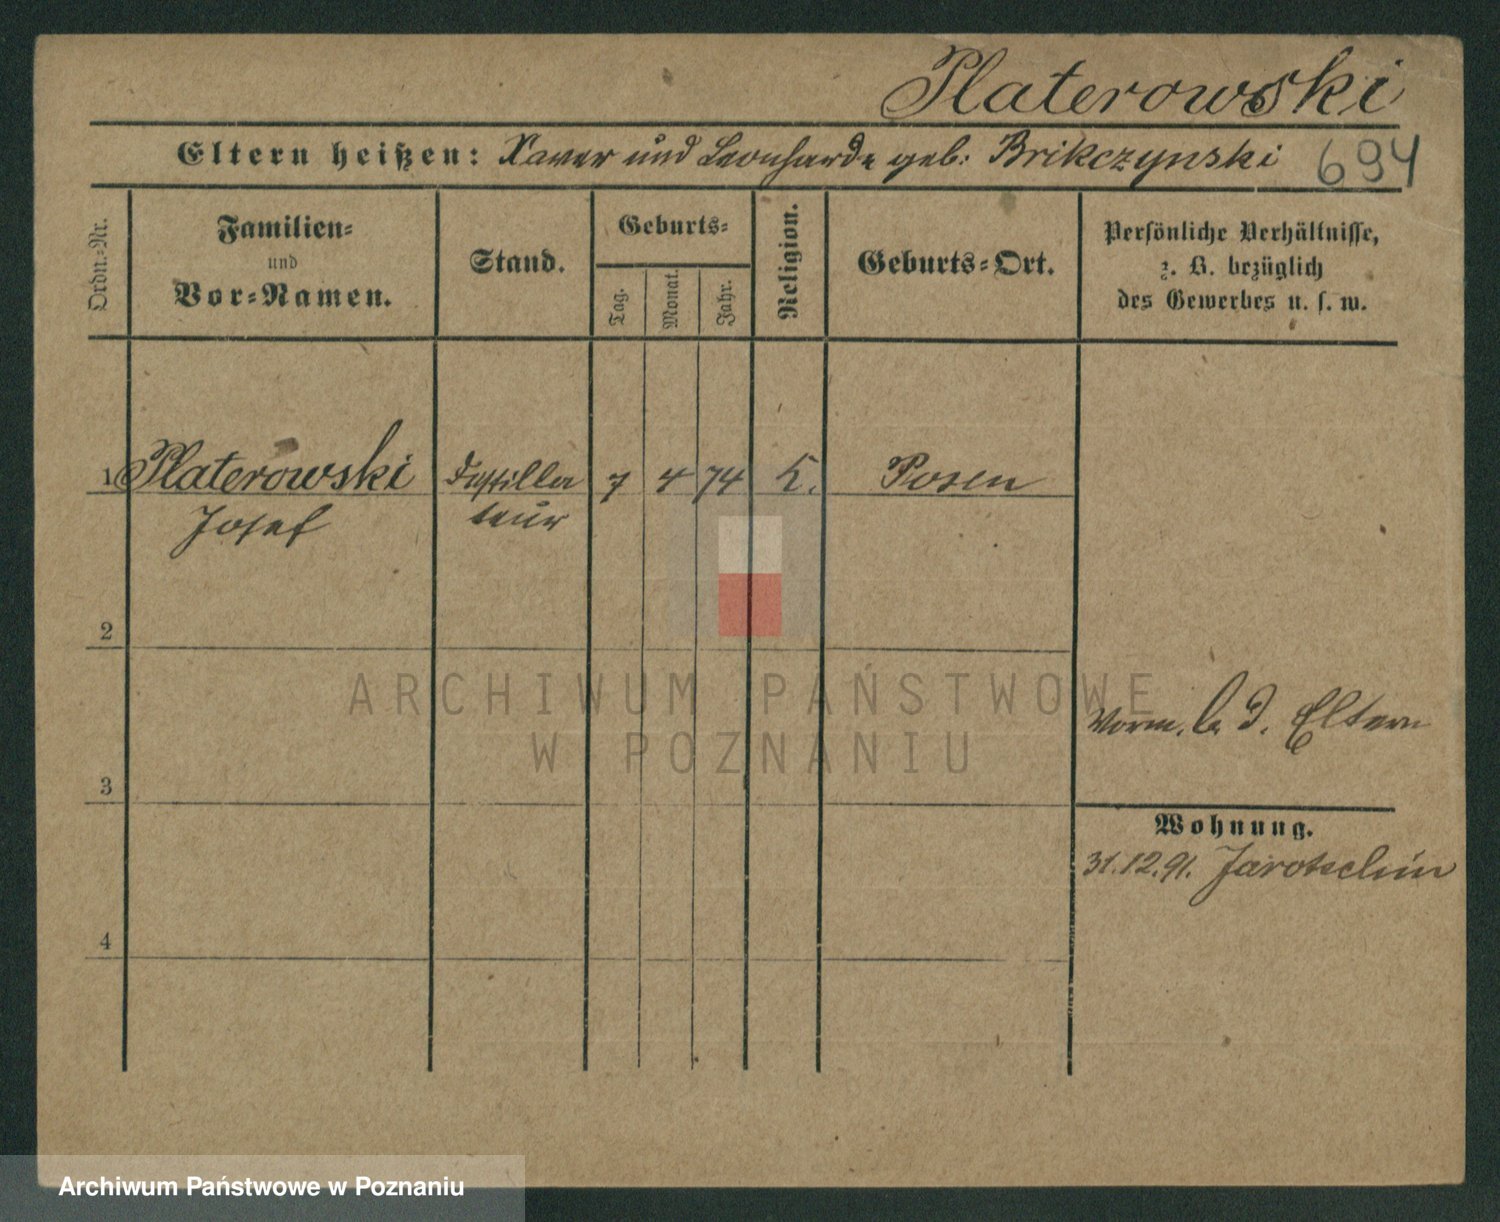 Platerowski
Eltern heißen: Xaver und Leonharde geb: Brikczynski 694
Ordn.-Nr.
Familien-
und
Vor-Namen.
Stand.
Geburts-
Tag.
Monat.
Jahr.
Religion.
Geburts-Ort.
Persönliche Verhältnisse,
z. B. bezüglich
des Gewerbes u. s. w.
1 Platerowski Destilla 7 4 74 K. Posen
Josef teur
2
ARCHIWUM PAŃSTWOWE
W POZNANIU
Vorm. b. d. Eltern
3
Wohnung.
31.12.91. Jarotschin
4
Archiwum Państwowe w Poznaniu